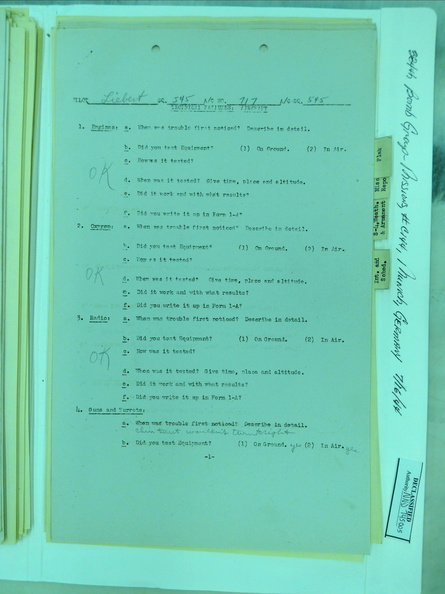 PILOT Liebert SQ. 545 A/C NO. 717 A/C SQ. 545
1. Engines: a. When was trouble first noticed? Describe in detail.
b. Did you test Equipment? (1) On Ground. (2) In Air.
c. How was it tested?
OK
d. When was it tested? Give time, place and altitude.
e. Did it work and with what results?
f. Did you write it up in Form 1-A?
2. Oxygen: a. When was trouble first noticed? Describe in detail.
b. Did you test Equipment? (1) On Ground. (2) In Air.
c. How was it tested?
OK
d. When was it tested? Give time, place and altitude.
e. Did it work and with what results?
f. Did you write it up in Form 1-A?
3. Radio: a. When was trouble first noticed? Describe in detail.
b. Did you test Equipment? (1) On Ground. (2) In Air.
c. How was it tested?
OK
d. When was it tested? Give time, place and altitude.
e. Did it work and with what results?
f. Did you write it up in Form 1-A?
4. Guns and Turrets:
a. When was trouble first noticed? Describe in detail.
Chin turret wouldn't turn right
b. Did you test Equipment? (1) On Ground. yes (2) In Air. yes
-1-
Flak
Miss
Reps
& Armament
and
Sched.
384th Bomb Group - Missions
Munich Germany 7/16/44
DECLASSIFIED
Authority NND 745005